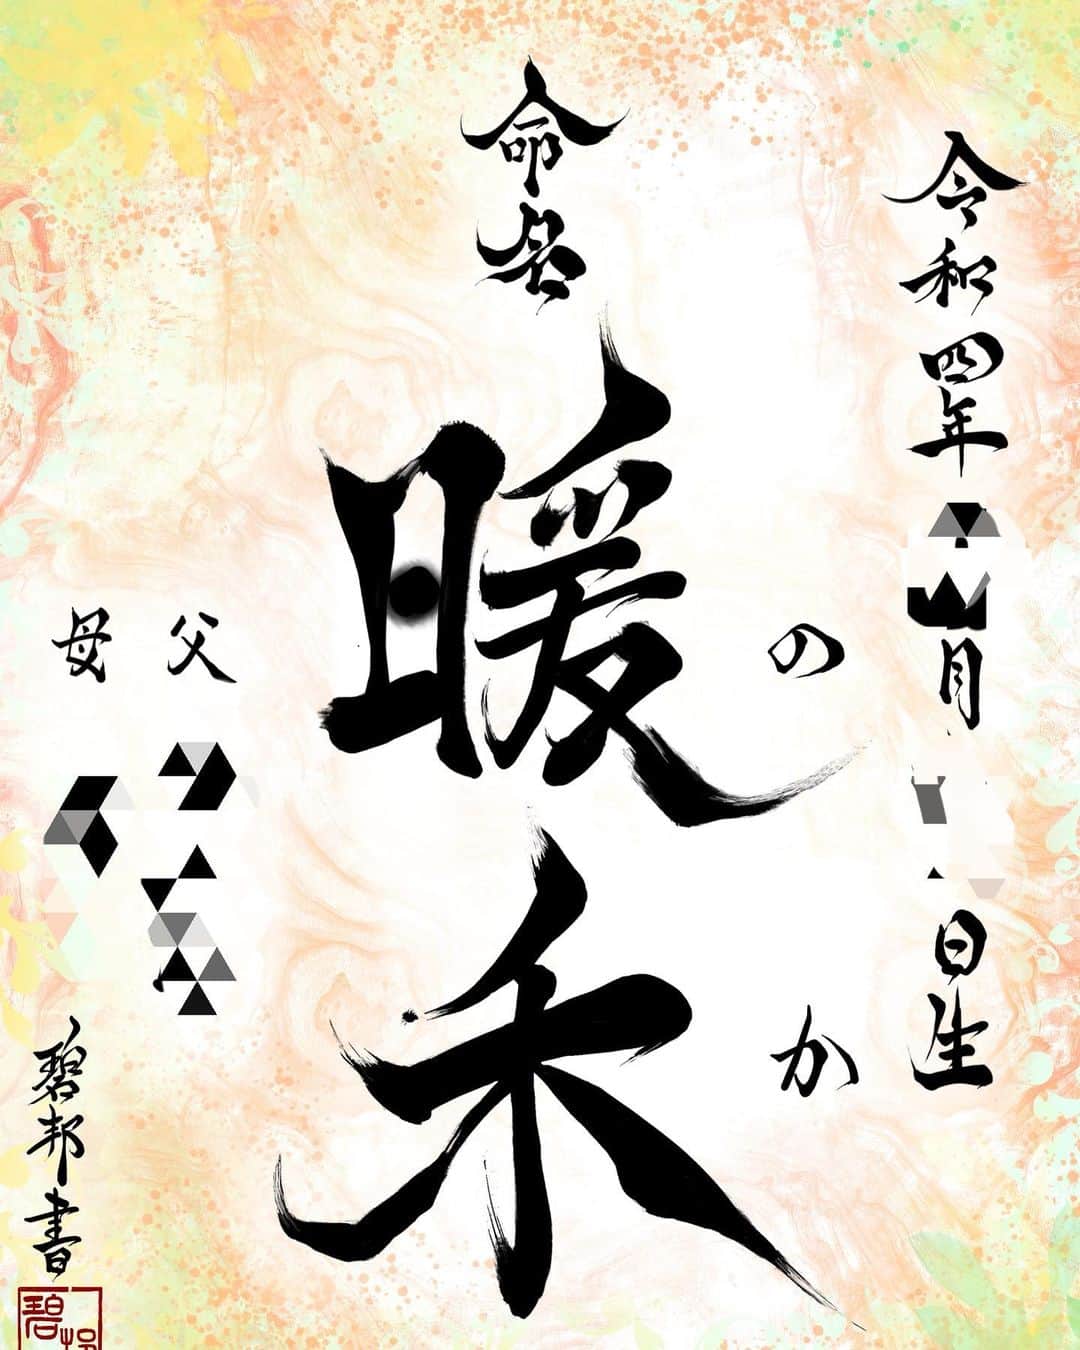 令和四年
月
日生
命名
暖禾
のか
父
母
碧邦書
碧